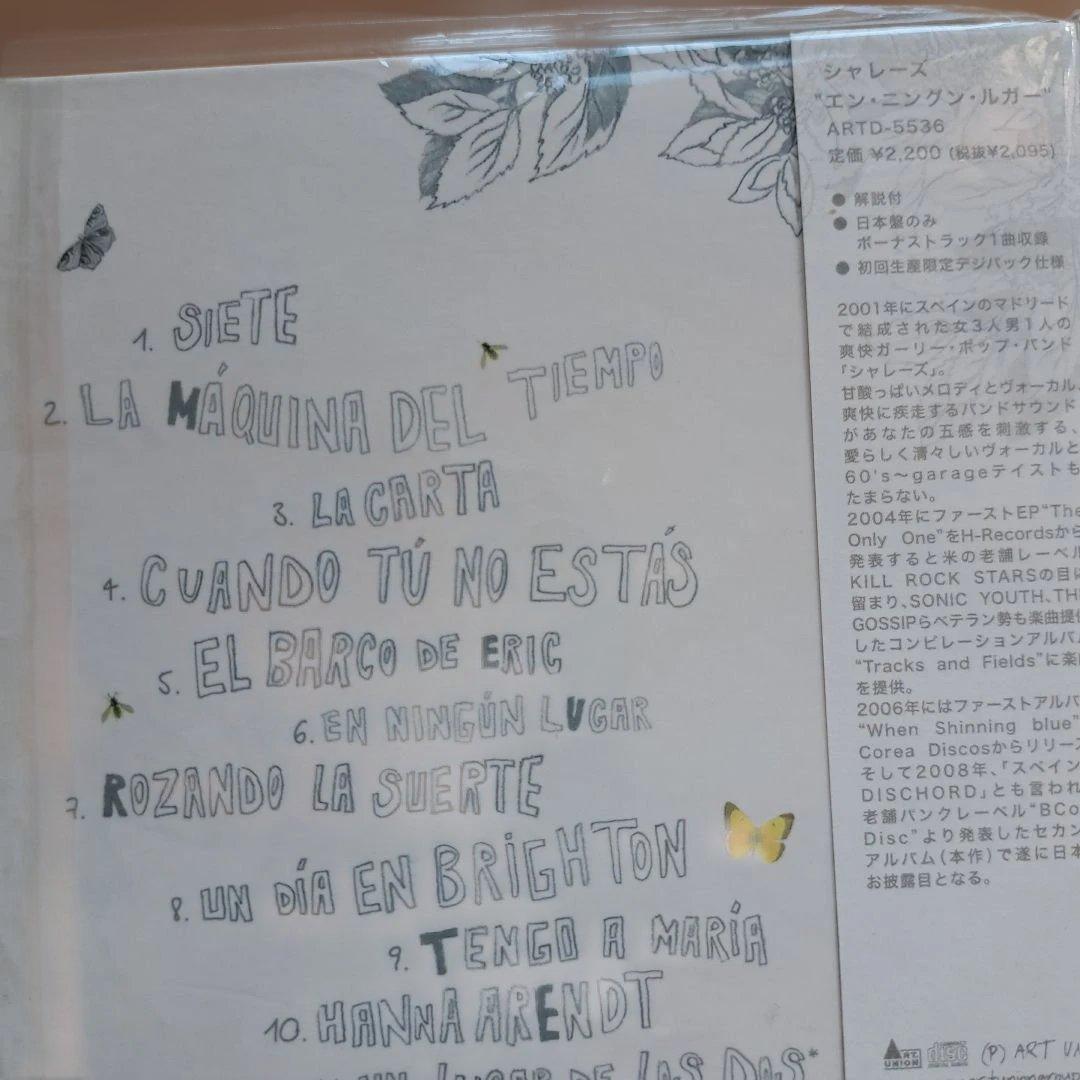 1. SIETE
2. LA MÁQUINA DEL TIEMPO
3. LA CARTA
4. CUANDO TÚ NO ESTÁS
5. EL BARCO DE ERIC
6. EN NINGÚN LUGAR
7. ROZANDO LA SUERTE
8. UN DÍA EN BRIGHTON
9. TENGO A MARÍA
10. HANNA ARENDT
UN LUGAR DE LAS DOS*
シャレーズ
"エン・ニングン・ルガー"
ARTD-5536
定価 ¥2,200 (税抜¥2,095)
● 解説付
● 日本盤のみ
ボーナストラック1曲収録
● 初回生産限定デジパック仕様
2001年にスペインのマドリード
で結成された女3人男1人の
爽快ガーリー・ポップ・バンド
「シャレーズ」。
甘酸っぱいメロディとヴォーカル、
爽快に疾走するバンドサウンド
があなたの五感を刺激する、
愛らしく清々しいヴォーカルと
60's～garageテイストも
たまらない。
2004年にファーストEP“The
Only One”をH-Recordsから
発表すると米の老舗レーベル
KILL ROCK STARSの目に
留まり、SONIC YOUTH、THE
GOSSIPらベテラン勢も楽曲提供
したコンピレーションアルバム
“Tracks and Fields”に楽曲
を提供。
2006年にはファーストアルバ
“When Shinning blue”
Corea Discosからリリース
そして2008年、「スペイン
DISCHORD」とも言われ
老舗パンクレーベル“BCo
Disc”より発表したセカン
アルバム(本作)で遂に日本
お披露目となる。
ART UNION
disc
(P) ART UN